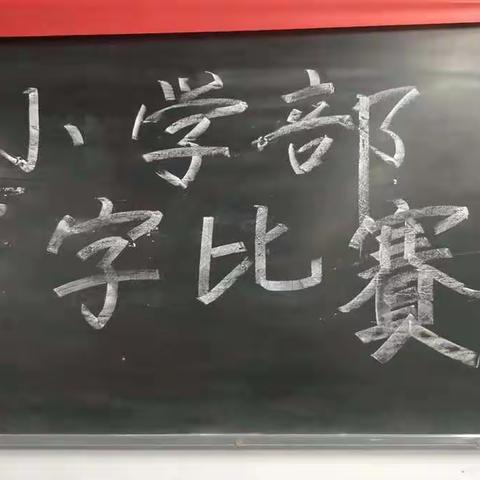 小学部
字比赛